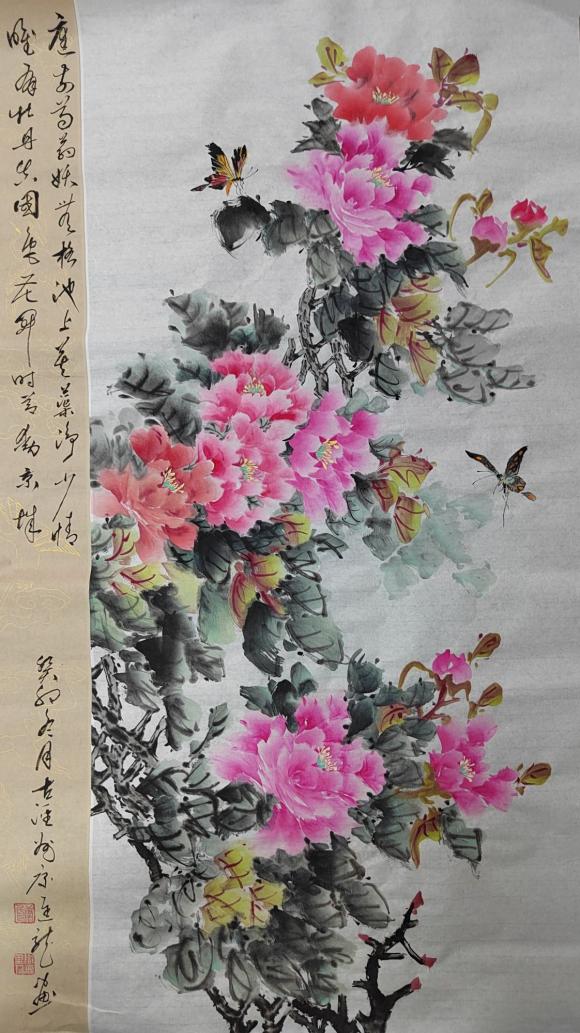 庭前芍药妖无格池上芙蕖净少情
唯有牡丹真国色花开时节动京城
癸卯冬月古淮